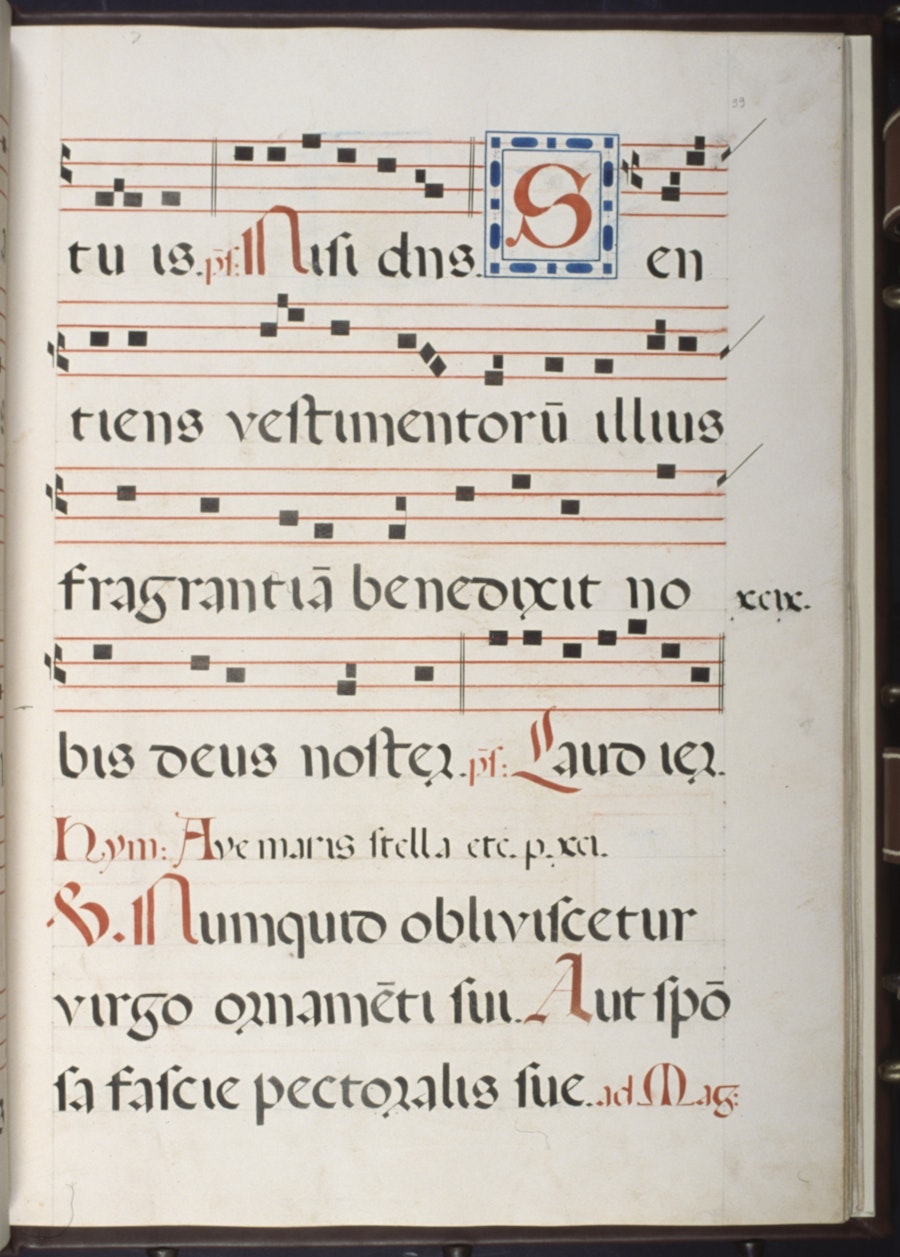 99
tu is. ps̄: Nisi dn̄s. Sen
tiens vestimentorū illius
fragrantiā benedixit no
xcix.
bis deus noster. ps̄: Laud ier.
Hym: Ave maris stella etc. p. xci.
V. Numquid obliviscetur
virgo ornamēti sui. Aut spō
sa fascie pectoralis sue. ad Mag: